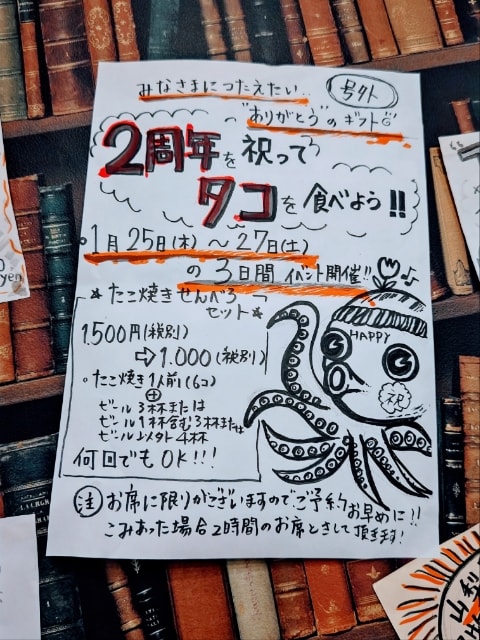 号外
みなさまにつたえたい..
"ありがとう"のギフト
2周年を祝って
タコを食べよう!!
1月25日(木)~27日(土)
の3日間イベント開催!!
☆たこ焼きせんべろ
セット☆
1.500円(税別)
⇨1.000(税別)
・たこ焼き1人前(6コ)
⊕
ビール3杯または
ビール1杯含む3杯または
ビール以外4杯
何回でもOK!!!
HAPPY
祝
注 お席に限りがございますのでご予約お早めに!!
こみあった場合2時間のお席とさせて頂きます!
yen
山梨